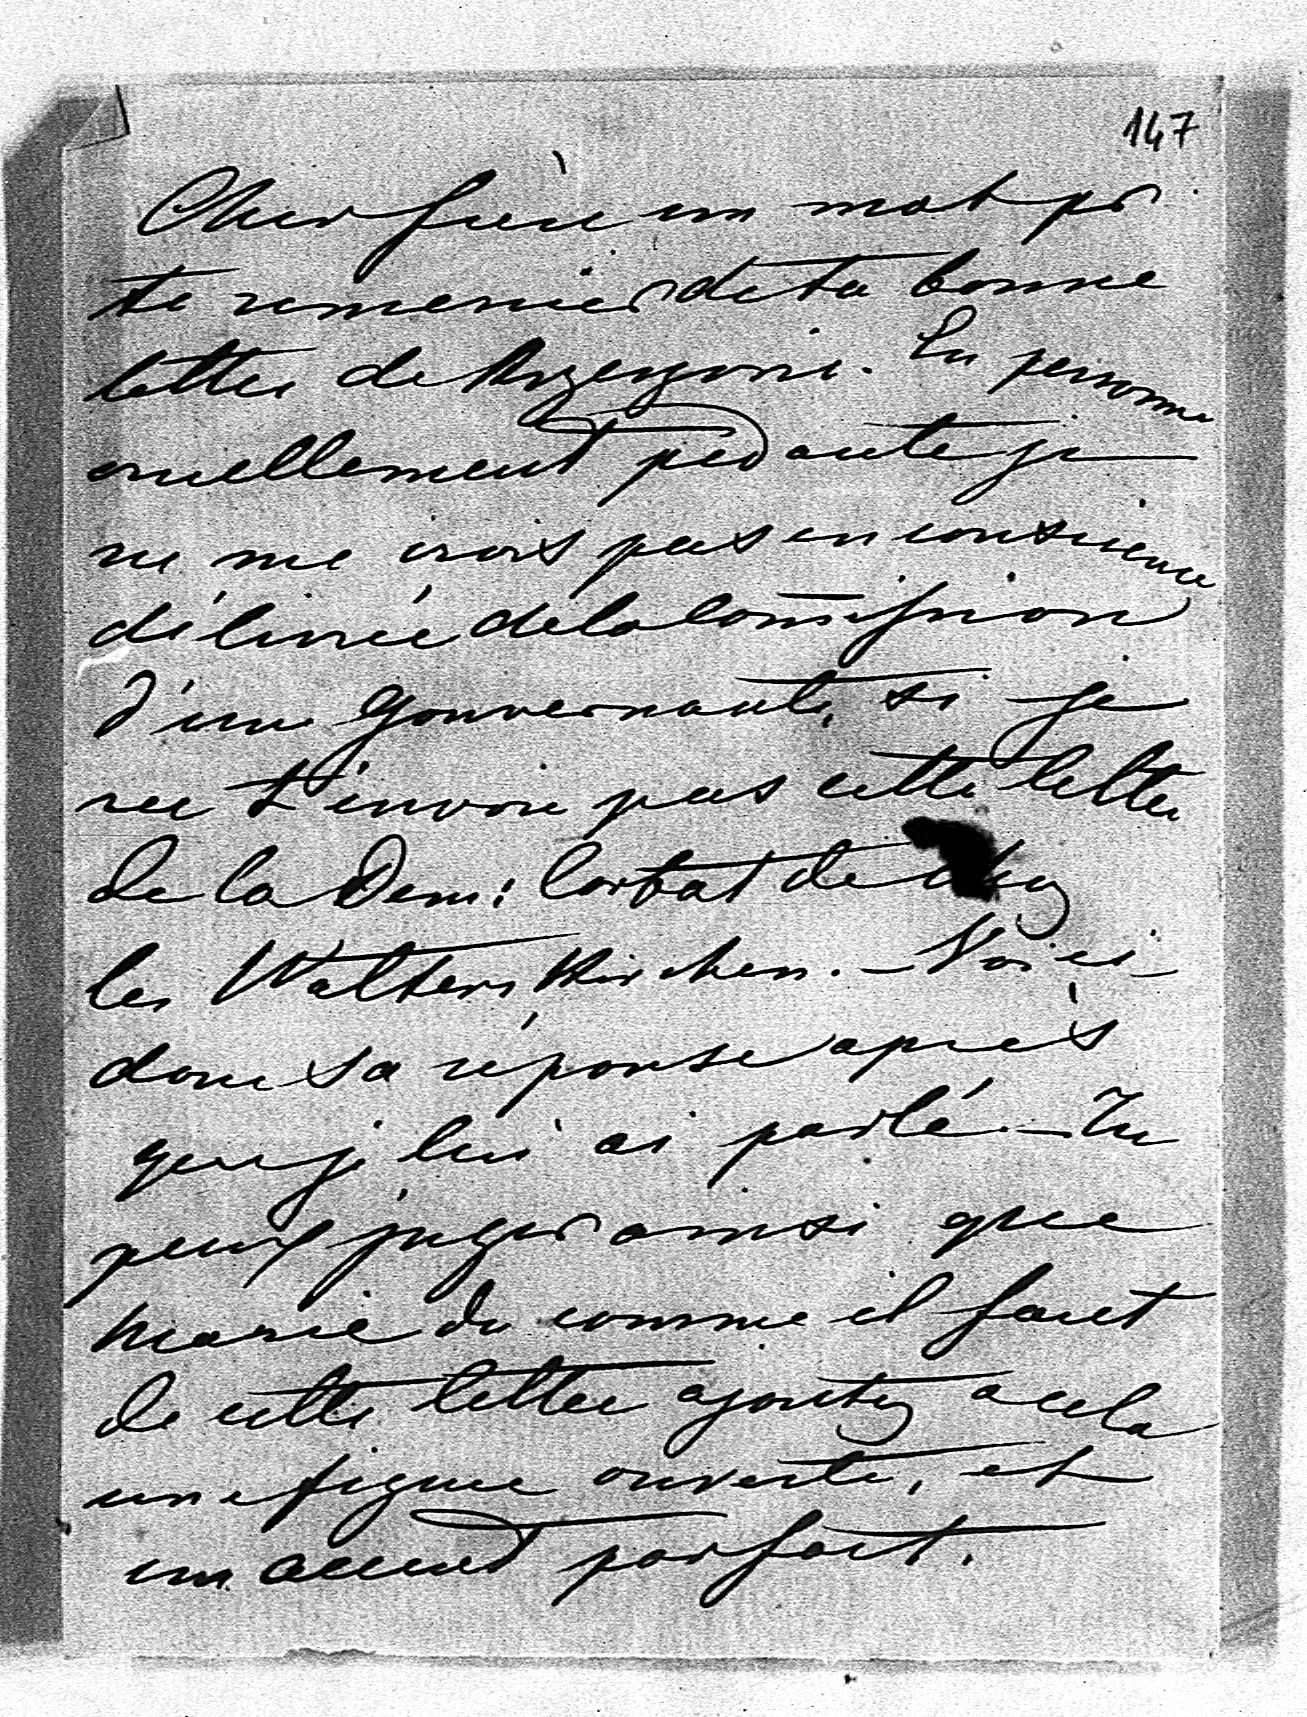 147
Cher frère un mot pr
te remercier de ta bonne
lettre de Krzeszowice. En personne
cruellement pedante je
ne me crois pas en conscience
délivrée de la Comission
d'une gouvernante, si je
ne t'envoie pas cette lettre
de la Dem: Corbat de chez
les Walterskirchen. – Voici
donc sa réponse après
que je lui ai parlé. – Tu
peux juger ainsi que
Marie du comme il faut
de cette lettre ajoutez a cela
une figure ouverte, et
un accent parfait.